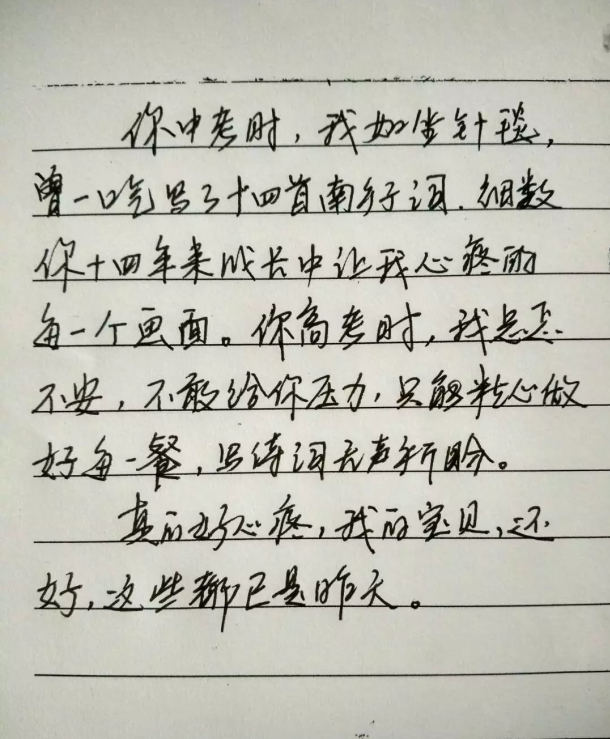 你中考时，我如坐针毯，
曾一口气写了十四首南乡子词．细数
你十四年来成长中让我心疼的
每一个画面。你高考时，我忐忑
不安，不敢给你压力，只能精心做
好每一餐，写诗词无声祈盼。
真的好心疼，我的宝贝，还
好，这些都已是昨天。